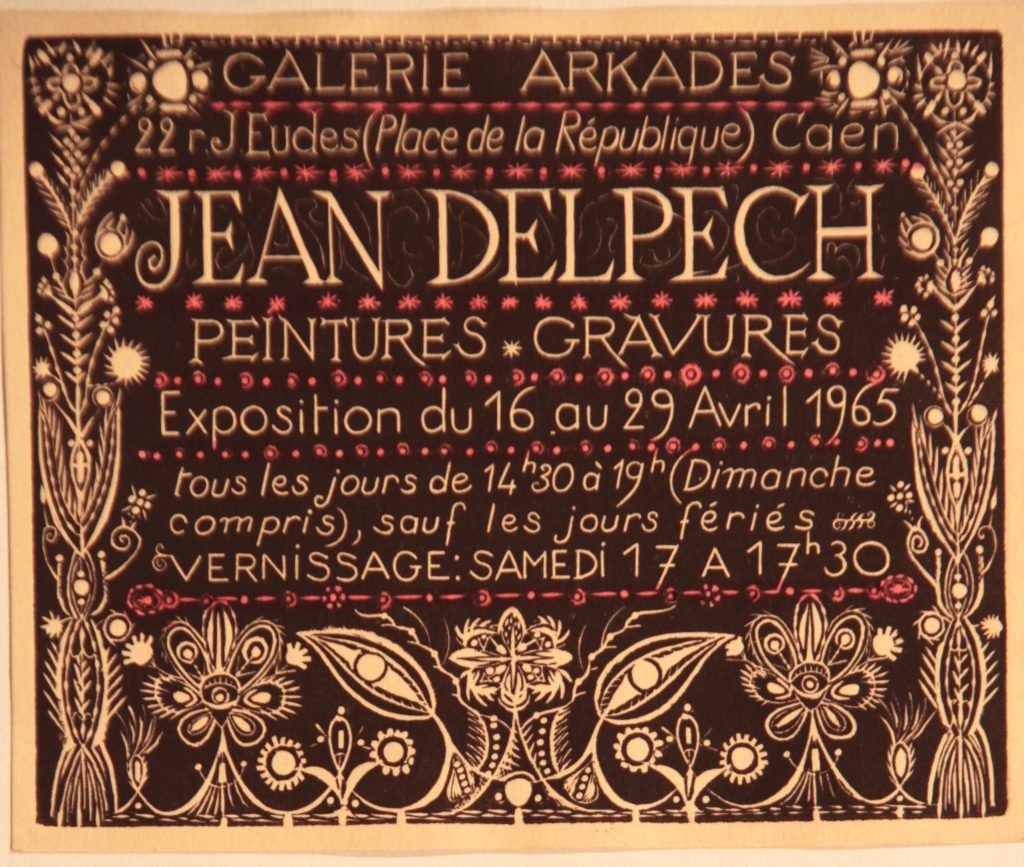 GALERIE ARKADES
22 r. J. Eudes (Place de la République) Caen
JEAN DELPECH
PEINTURES * GRAVURES
Exposition du 16 au 29 Avril 1965
tous les jours de 14h30 à 19h (Dimanche
compris), sauf les jours fériés
VERNISSAGE: SAMEDI 17 A 17h30